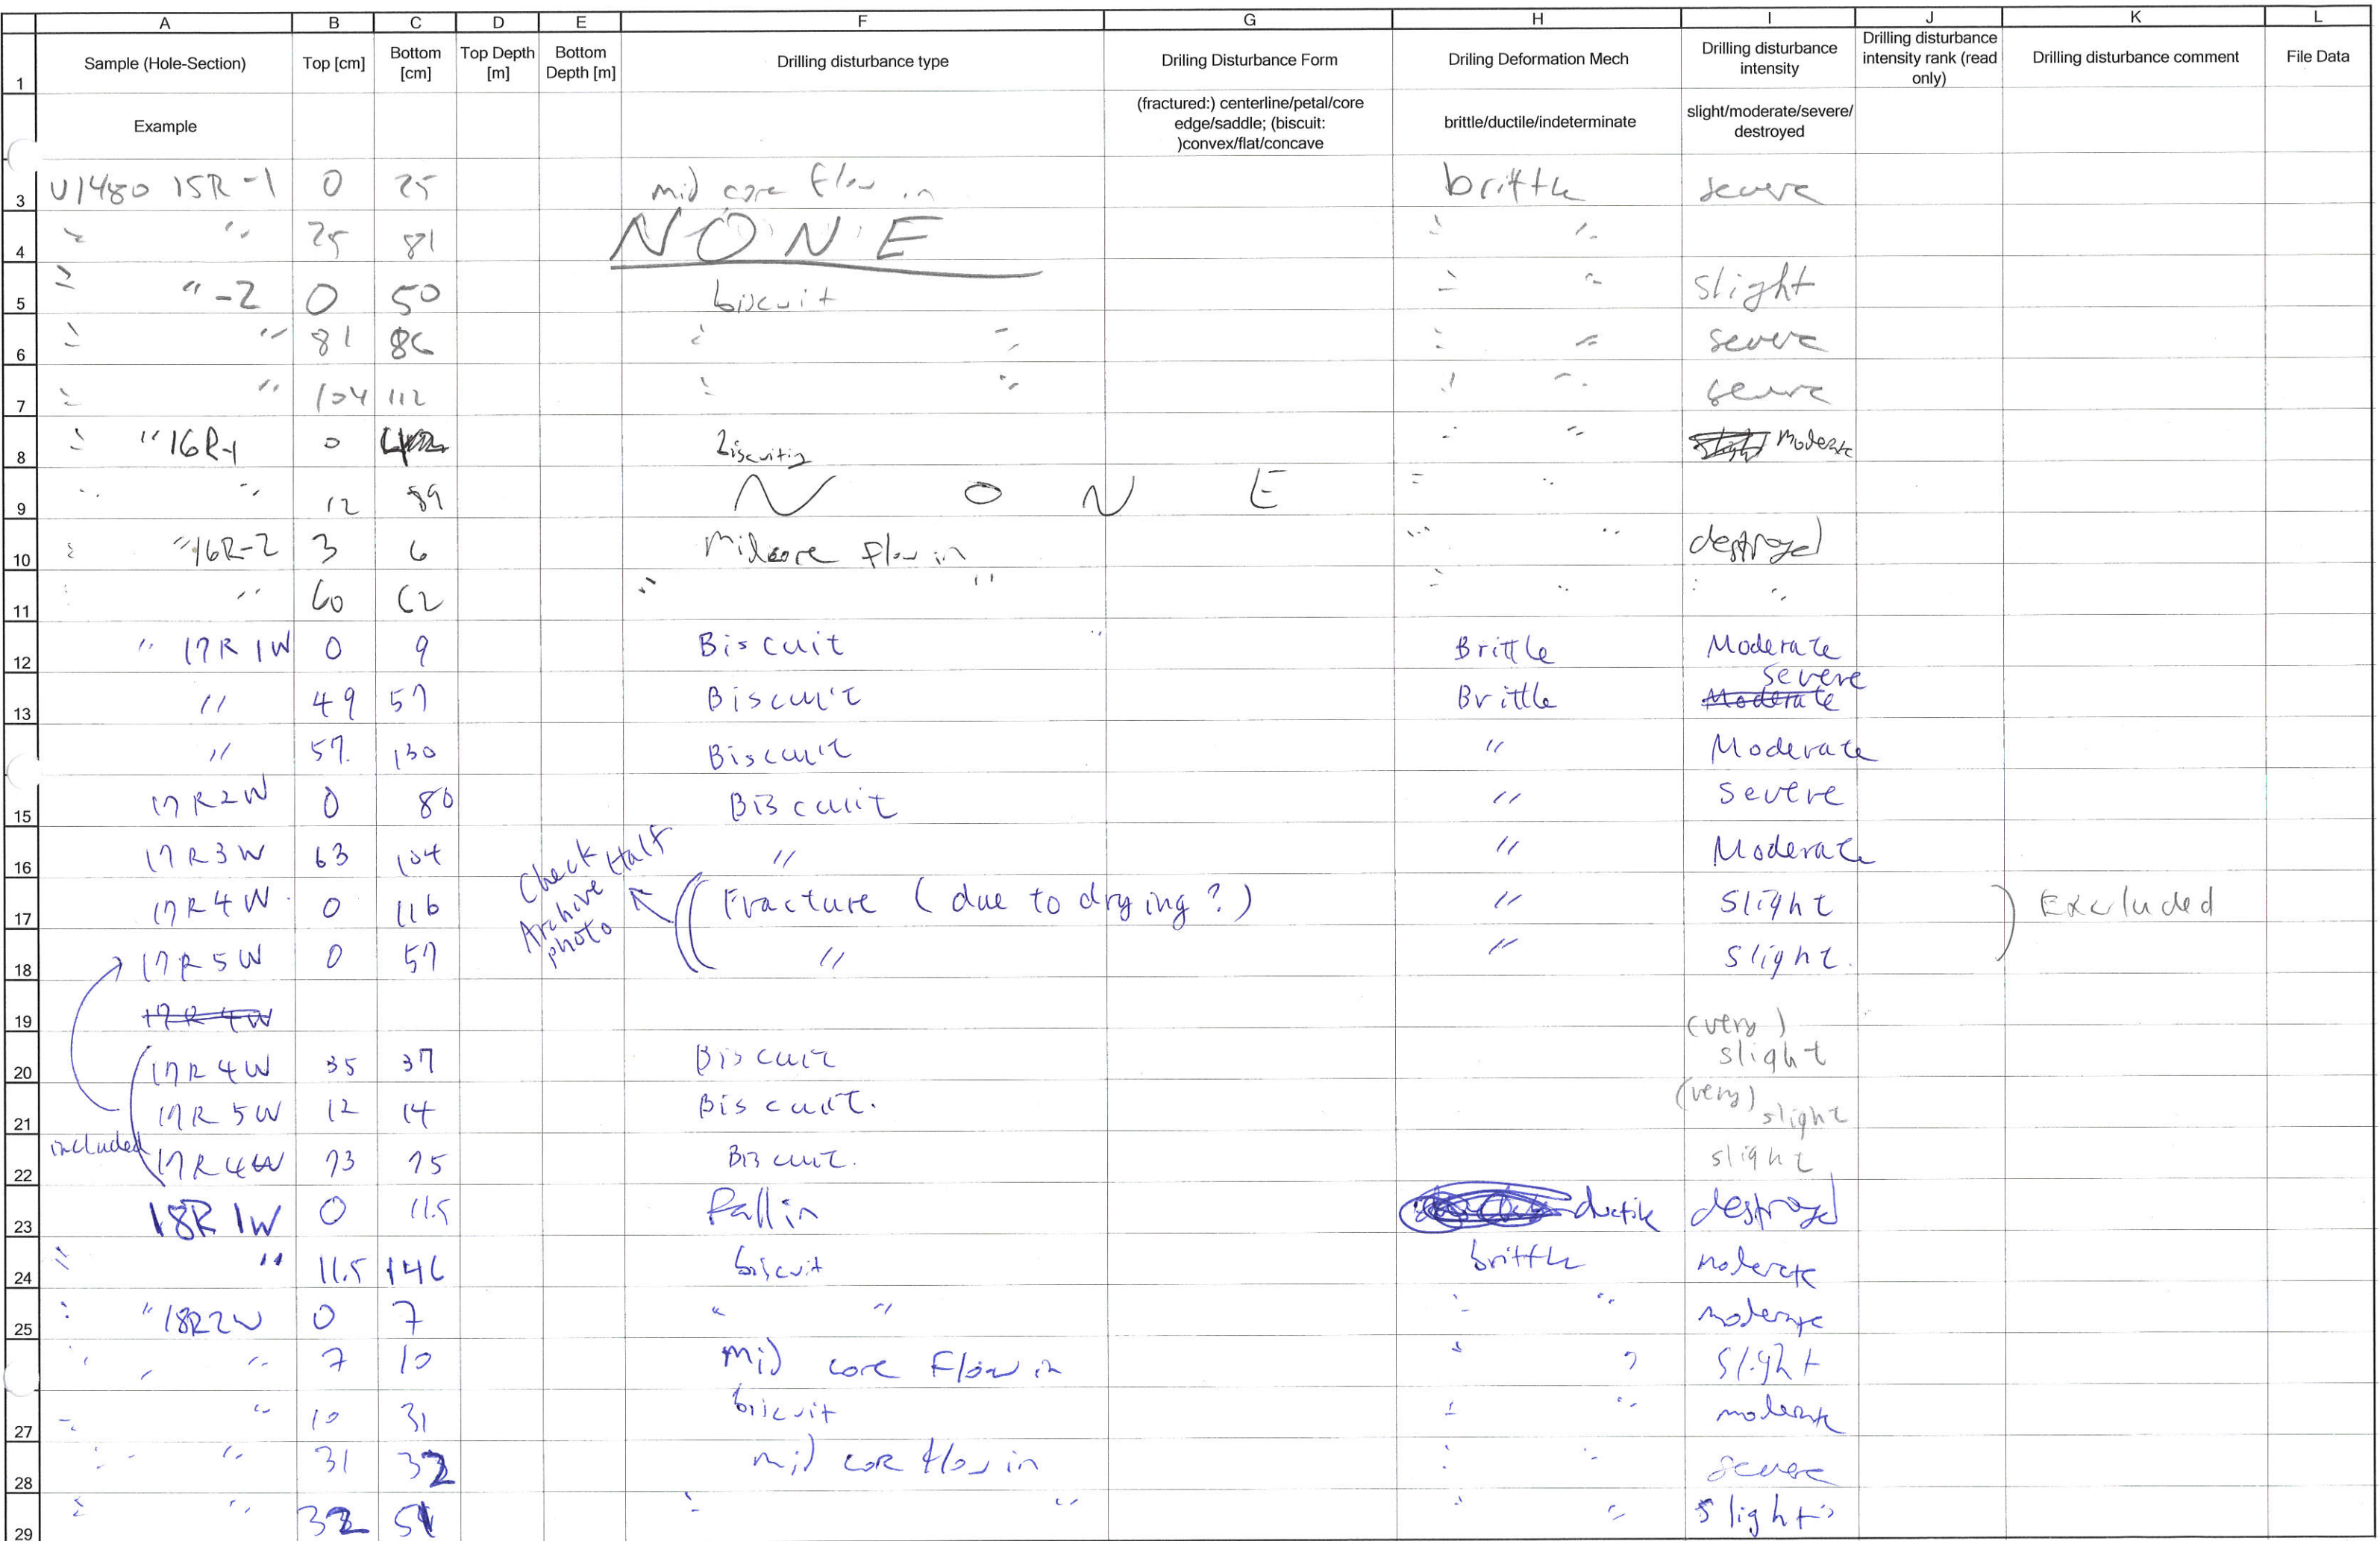 A B C D E F G H I J K L
1 Sample (Hole-Section) Top [cm] Bottom [cm] Top Depth [m] Bottom Depth [m] Drilling disturbance type Driling Disturbance Form Driling Deformation Mech Drilling disturbance intensity Drilling disturbance intensity rank (read only) Drilling disturbance comment File Data
Example (fractured:) centerline/petal/core edge/saddle; (biscuit: )convex/flat/concave brittle/ductile/indeterminate slight/moderate/severe/destroyed
3 U1480 15R-1 0 25 mid core flow in brittle severe
4 " " 25 81 NONE " "
5 " "-2 0 50 biscuit " " slight
6 " " 81 86 " " " " severe
7 " " 104 112 " " " " severe
8 " "16R-1 0 biscuiting " " moderate
9 " " 12 89 NONE " "
10 " "16R-2 3 6 Midcore flow in " " destroyed
11 " " 60 62 " " " " " "
12 " 17R 1W 0 9 Biscuit Brittle Moderate
13 " 49 57 Biscuit Brittle Moderate Severe
" 57 130 Biscuit " Moderate
15 17R2W 0 80 Biscuit " Severe
16 17R3W 63 104 " " Moderate
17 17R4W 0 116 Fracture (due to drying?) " Slight Excluded
18 17R5W 0 57 " " Slight
Check Archive Half photo
19 17R4W
20 17R4W 35 37 Biscuit (very) slight
21 17R5W 12 14 Biscuit. (very) slight
22 included 17R4W 73 75 Biscuit. slight
23 18R1W 0 11.5 fall in ductile destroyed
24 " " 11.5 146 biscuit brittle moderate
25 " "18R2W 0 7 " " " " moderate
" " 7 10 mid core flow in " " slight
27 " " 10 31 biscuit " " moderate
28 " " 31 32 mid core flow in " " severe
29 " " 32 51 " " " " slight